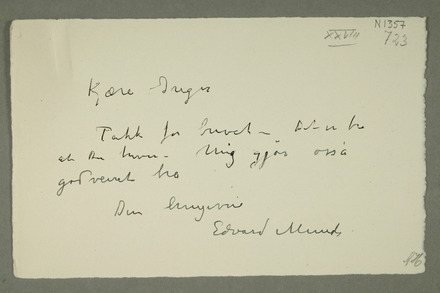 N1357
XXVIII
723
Kjære Inger
Takk for brevet – Det er bra
at Du – Mig gjør også
godveiret bra
Din hengivne
Edvard Munch